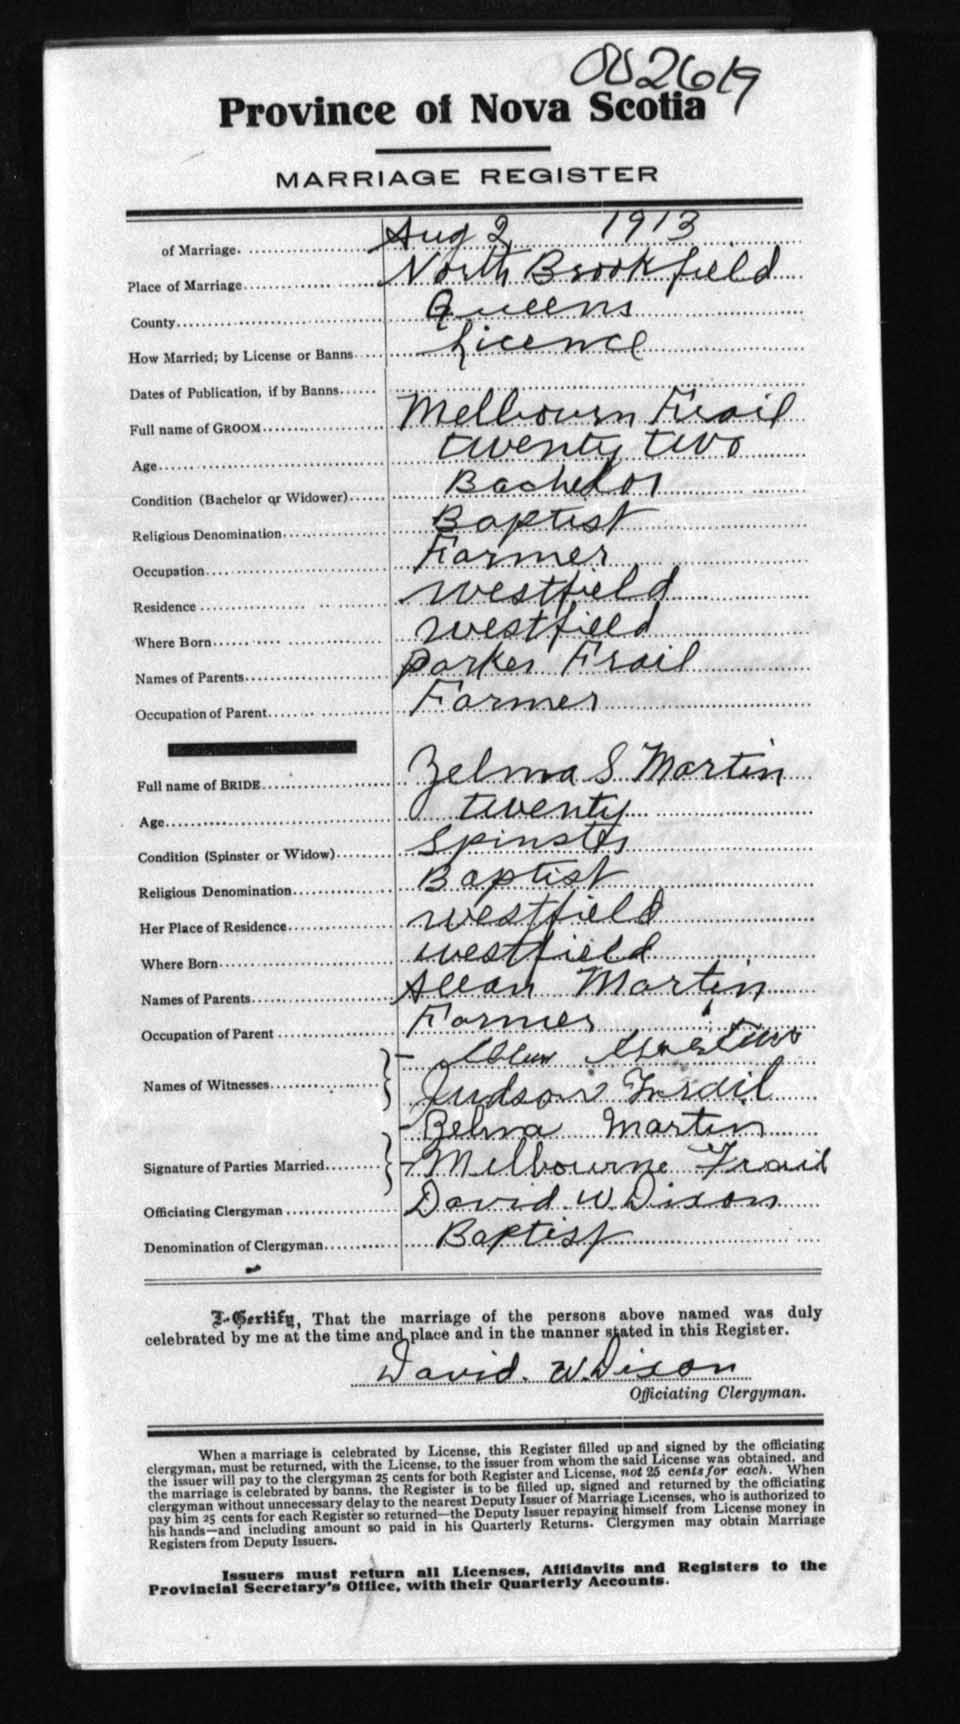 002619
Province of Nova Scotia
MARRIAGE REGISTER
of Marriage Aug 2 1913
Place of Marriage North Brookfield
County Queens
How Married; by License or Banns Licence
Dates of Publication, if by Banns
Full name of GROOM Melbourn Frail
Age twenty two
Condition (Bachelor or Widower) Bachelor
Religious Denomination Baptist
Occupation Farmer
Residence Westfield
Where Born Westfield
Names of Parents Parker Frail
Occupation of Parent Farmer
Full name of BRIDE Zelma S. Martin
Age twenty
Condition (Spinster or Widow) Spinster
Religious Denomination Baptist
Her Place of Residence Westfield
Where Born Westfield
Names of Parents Allan Martin
Occupation of Parent Farmer
Names of Witnesses
Judson Frail
Zelma Martin
Signature of Parties Married Melbourne Frail
Officiating Clergyman David W. Dixon
Denomination of Clergyman Baptist
I Certify, That the marriage of the persons above named was duly
celebrated by me at the time and place and in the manner stated in this Register.
David. W. Dixon
Officiating Clergyman.
When a marriage is celebrated by License, this Register filled up and signed by the officiating
clergyman, must be returned, with the License, to the issuer from whom the said License was obtained, and
the issuer will pay to the clergyman 25 cents for both Register and License, not 25 cents for each. When
the marriage is celebrated by banns, the Register is to be filled up, signed and returned by the officiating
clergyman without unnecessary delay to the nearest Deputy Issuer of Marriage Licenses, who is authorized to
pay him 25 cents for each Register so returned—the Deputy Issuer repaying himself from License money in
his hands—and including amount so paid in his Quarterly Returns. Clergymen may obtain Marriage
Registers from Deputy Issuers.
Issuers must return all Licenses, Affidavits and Registers to the
Provincial Secretary's Office, with their Quarterly Accounts.